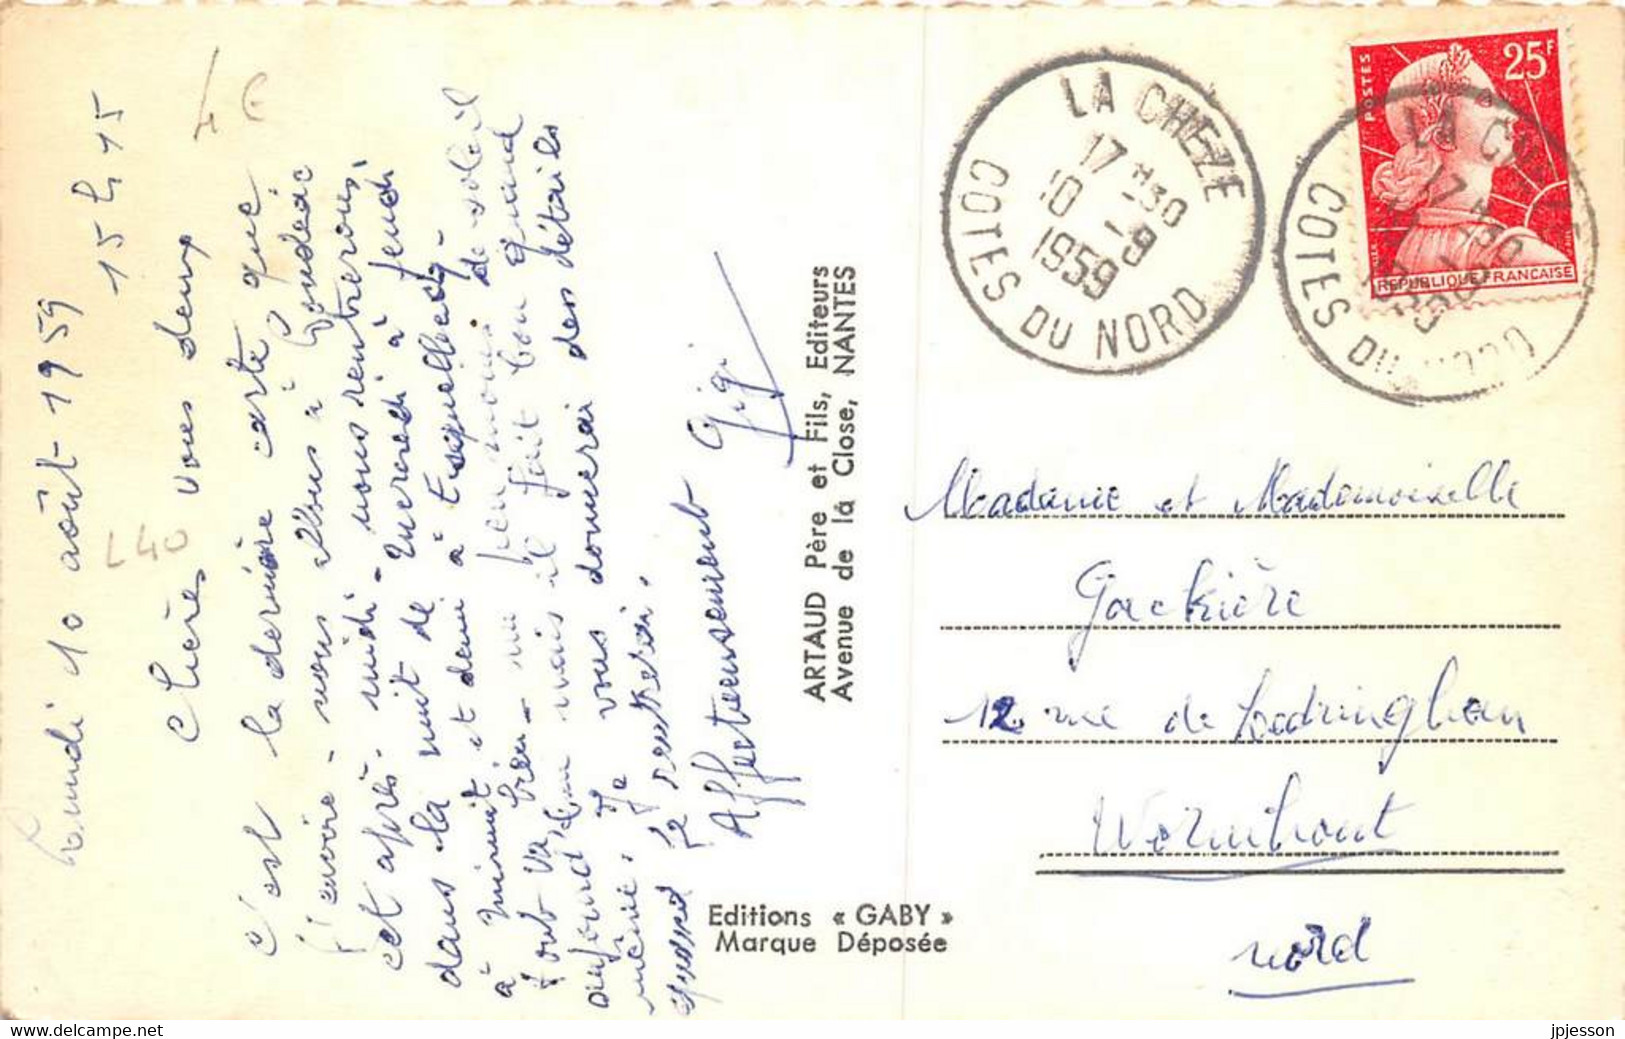 Lundi 10 août 1959
15 h 15
4 €
L40
Chères vous deux
C'est la dernière carte que
j'envoie - nous allons à Loudéac
cet après-midi - nous rentrerons,
dans la nuit de Mercredi à Jeudi
à minuit et demi à Esquelbecq -
tout va bien - un peu moins de soleil
aujourd'hui mais il fait bon quand
même. Je vous donnerai des détails
quand je rentrerai.
Affectueusement Gigi
ARTAUD Père et Fils, Editeurs
Avenue de la Close, NANTES
Editions « GABY »
Marque Déposée
LA CHEZE
17 H 30
10 - 9
1959
COTES DU NORD
POSTES
25F
REPUBLIQUE FRANCAISE
LA CHEZE
COTES DU NORD
Madame et Mademoiselle
Gackière
12 rue de Ledringhem
Wormhout
nord
www.delcampe.net
jpjesson